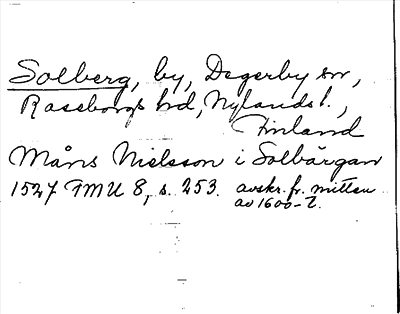 Solberg, by, Degerby sn,
Raseborgs hd, Nylands l.,
Finland
Måns Nielsson i Solbärgan
1527 FMU 8, s. 253. avskr. fr. mitten
av 1600-t.